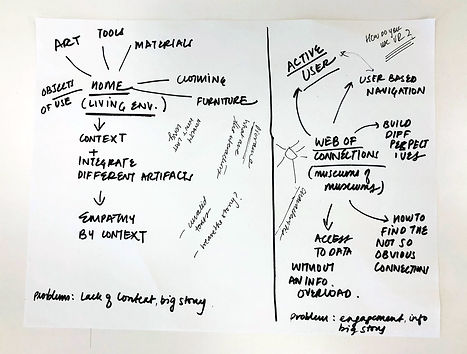 ART
TOOLS
MATERIALS
OBJECTS
OF USE
HOME
(LIVING ENV.)
CLOTHING
FURNITURE
CONTEXT
+
INTEGRATE
DIFFERENT ARTIFACTS
EMPATHY
BY CONTEXT
problems: Lack of context, big story
HOW DO YOU
USE VR?
ACTIVE
USER
USER BASED
NAVIGATION
WEB OF
CONNECTIONS
(museums of
museums)
BUILD
DIFF
PERPECT
IVES
ACCESS
TO DATA
WITHOUT
AN INFO.
OVERLOAD.
HOW TO
FIND THE
NOT SO
OBVIOUS
CONNECTIONS
Problem: engagement, info
big story